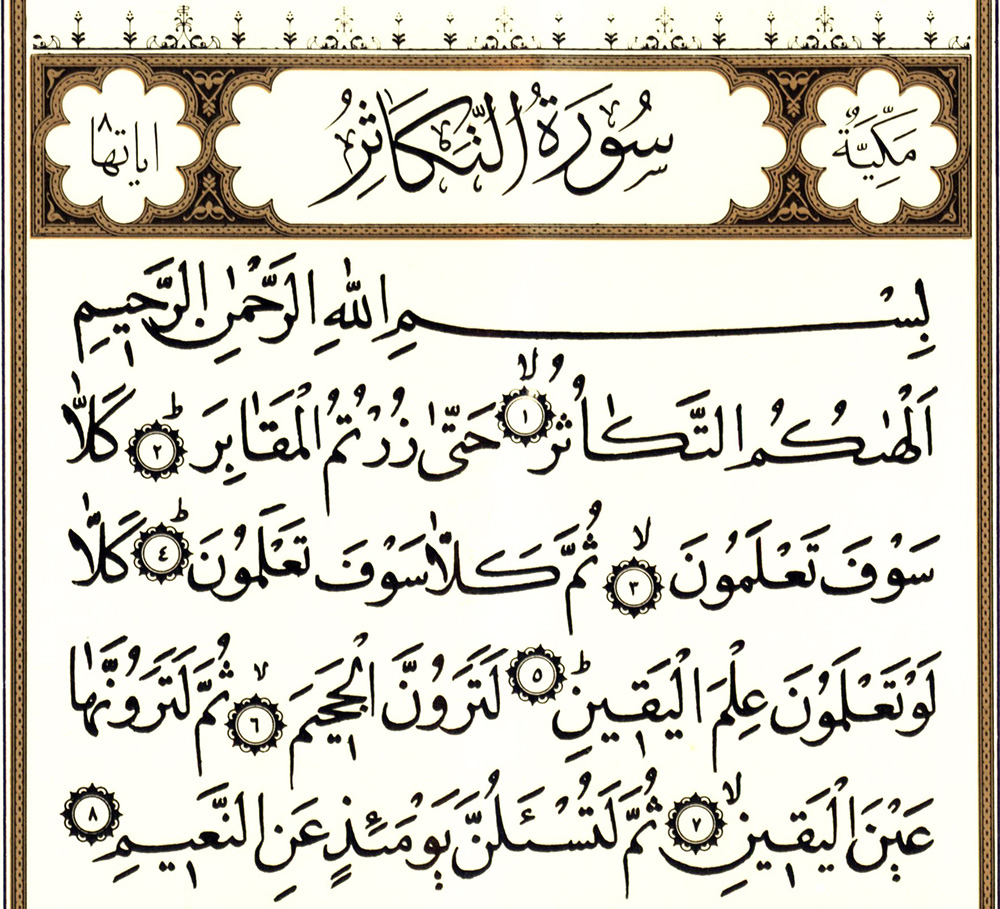 مَكِّيَّةٌ سُورَةُ التَّكَاثُرِ اياتها ٨
بِسْمِ اللّٰهِ الرَّحْمٰنِ الرَّحيمِ
اَلْهٰيكُمُ التَّكَاثُرُۙ ﴿١﴾ حَتّٰى زُرْتُمُ الْمَقَابِرَۜ ﴿٢﴾ كَلَّا
سَوْفَ تَعْلَمُونَۙ ﴿٣﴾ ثُمَّ كَلَّا سَوْفَ تَعْلَمُونَۜ ﴿٤﴾ كَلَّا
لَوْ تَعْلَمُونَ عِلْمَ الْيَقينِۜ ﴿٥﴾ لَتَرَوُنَّ الْجَحيمَۙ ﴿٦﴾ ثُمَّ لَتَرَوُنَّهَا
عَيْنَ الْيَقينِۙ ﴿٧﴾ ثُمَّ لَتُسْـَٔلُنَّ يَوْمَئِذٍ عَنِ النَّعيمِ ﴿٨﴾